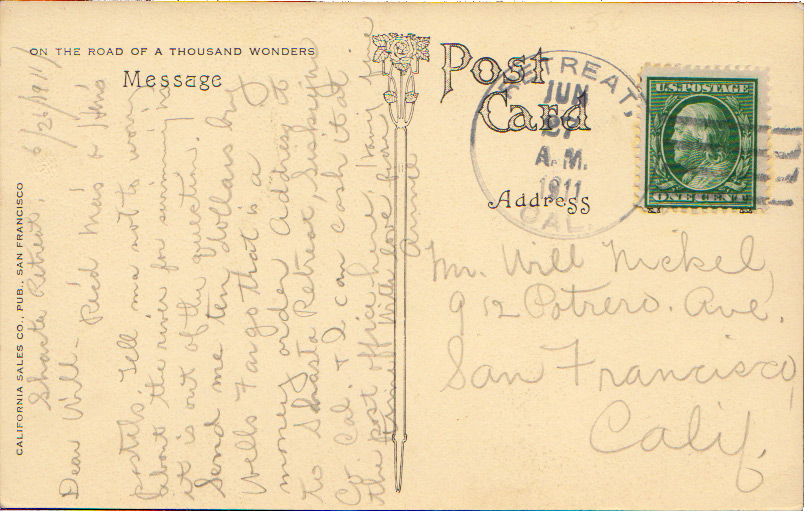 ON THE ROAD OF A THOUSAND WONDERS
Message
CALIFORNIA SALES CO., PUB., SAN FRANCISCO
Shasta Retreat, 6/26/1911
Dear Will - Rec'd Ma's &
postals. Tell ma not to worry
about the river for swimming in
it is out of the question.
Send me ten dollars by
Wells Fargo that is a
money order Address to
to Shasta Retreat, Siskiyou
Co. Cal. & I can cash it at
the post office here.
With love
Post
Card
Address
RETREAT,
JUN
27
A.M.
1911
CAL.
U.S. POSTAGE
ONE CENT
Mr. Will Nickel,
912 Potrero. Ave.
San Francisco,
Calif.